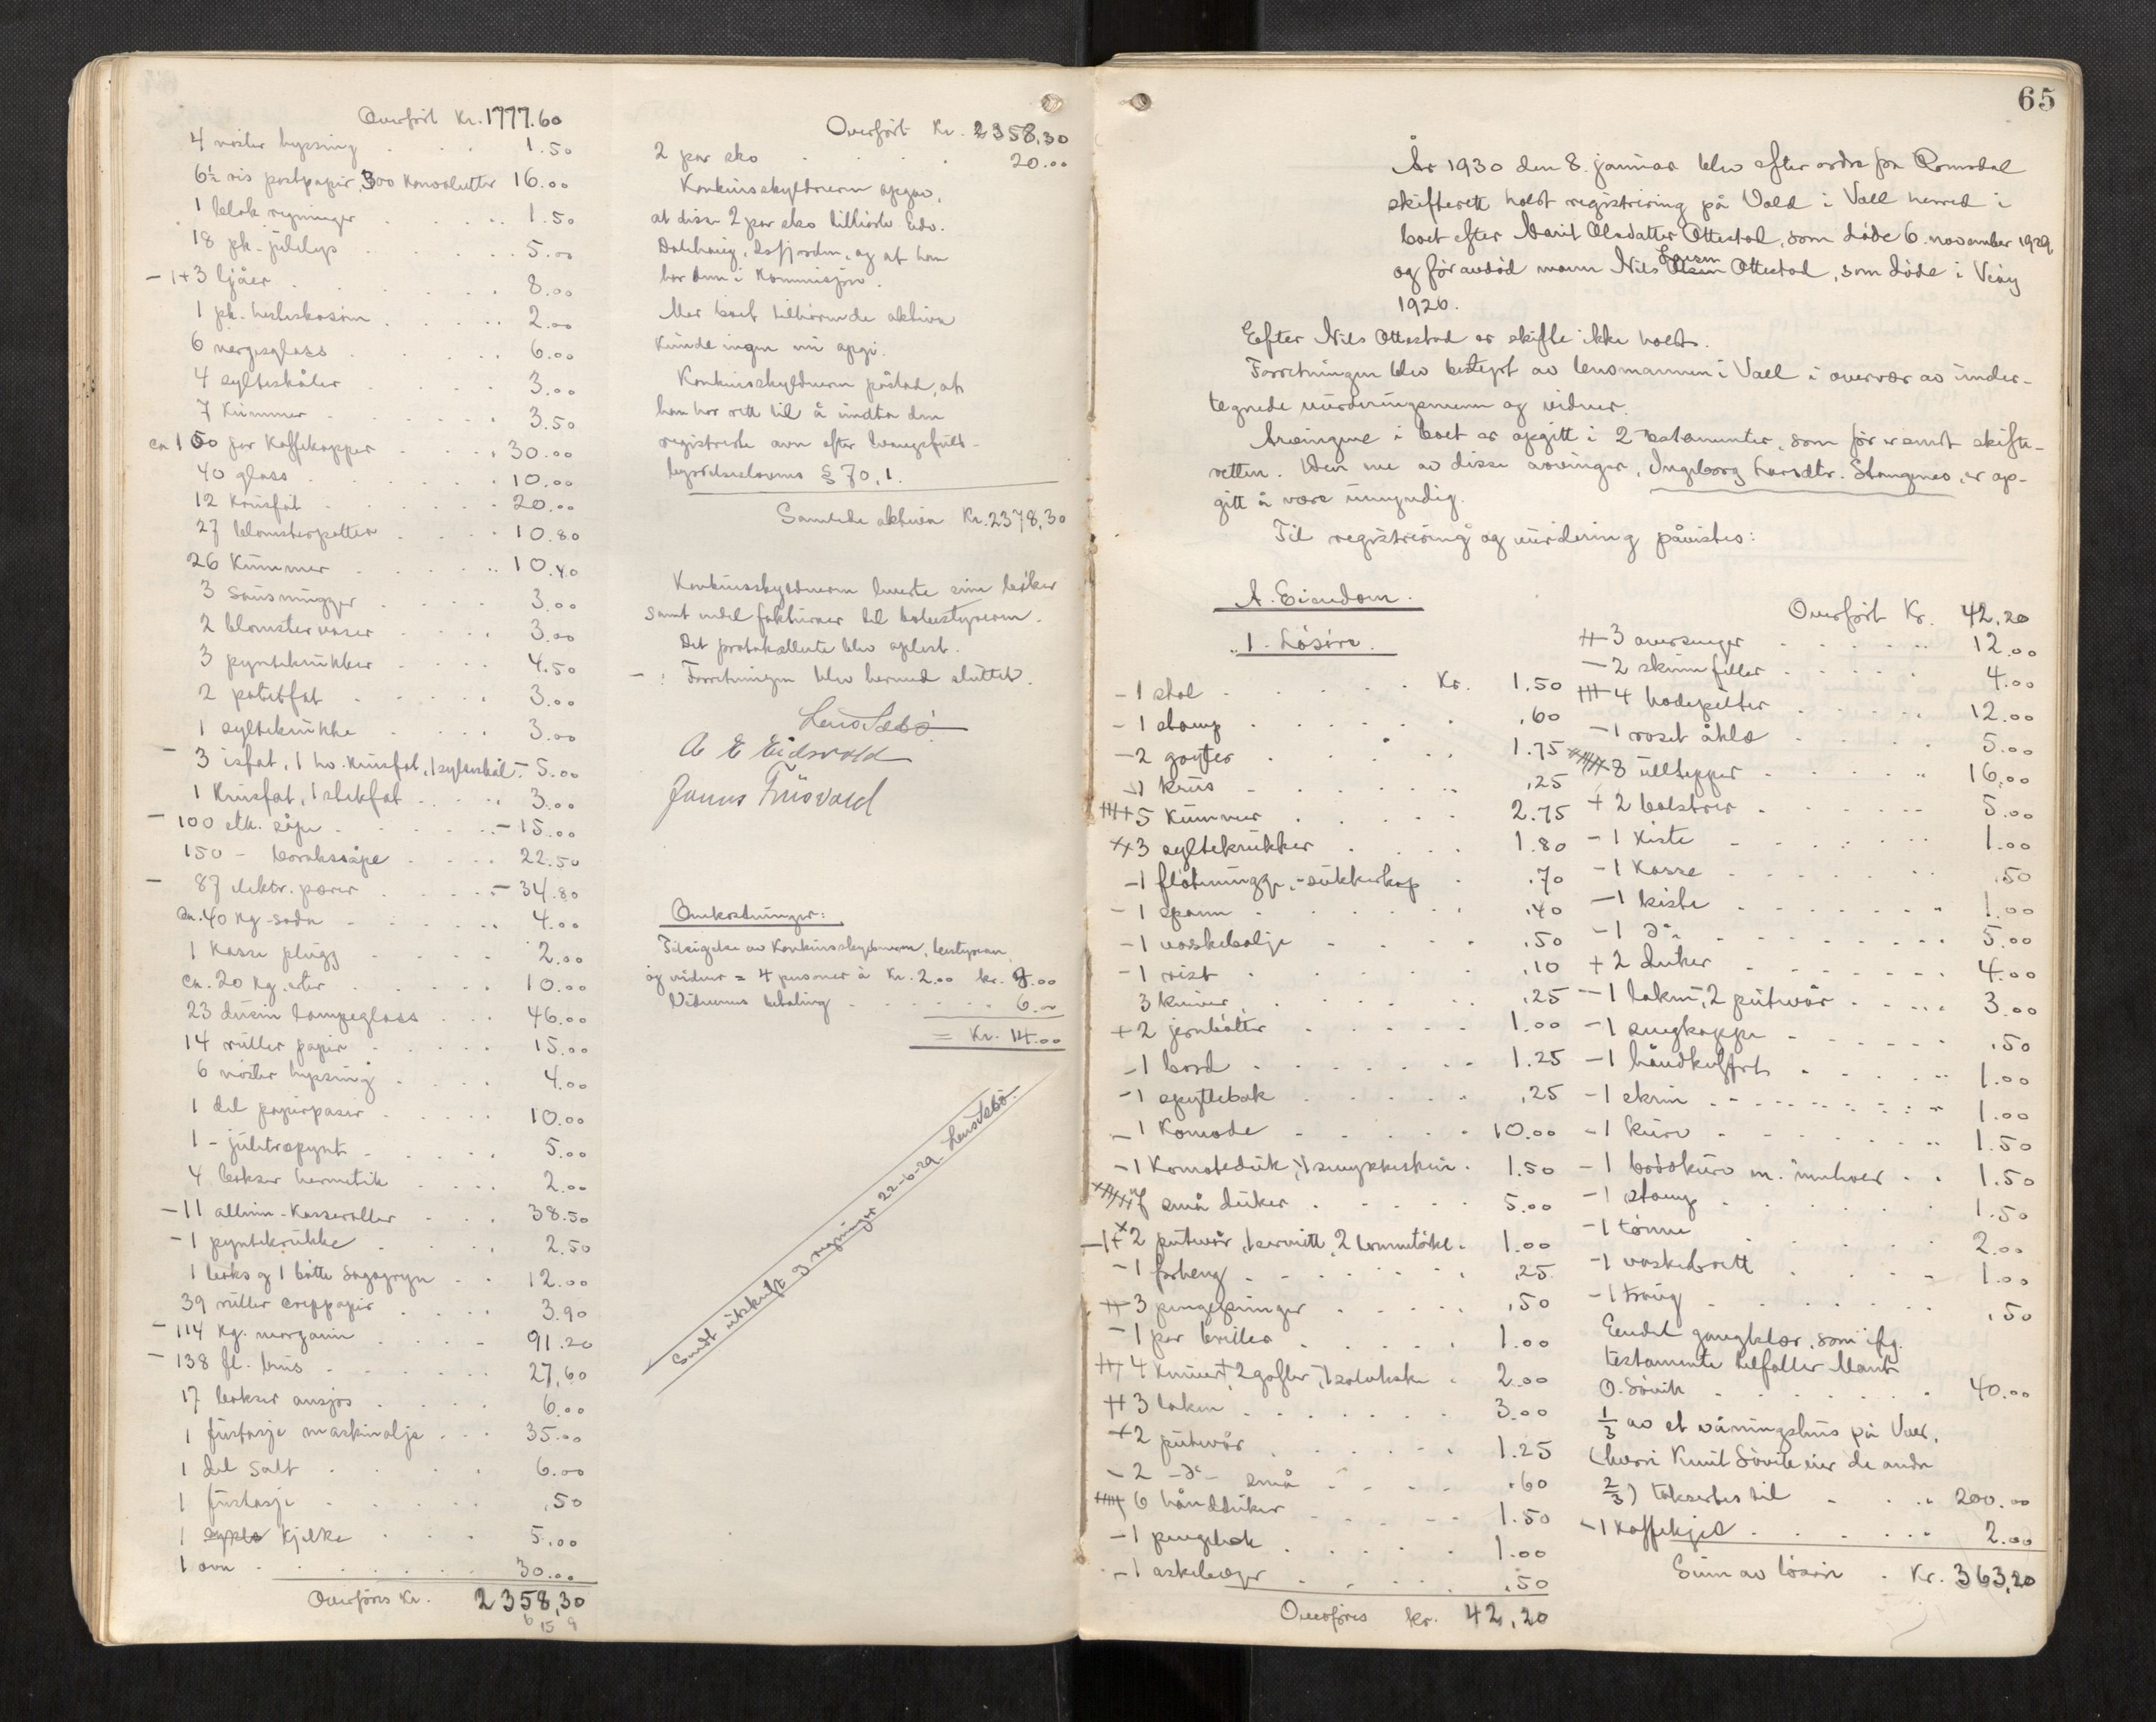 Overført Kr. 1777.60
4 nøster hyssing . . . 1.50
6½ ris postpapir, 500 konvolutter 16.00
1 blok regninger . . . . 1.50
18 pk. julelys . . . . 5.00
- 1+3 ljåer . . . . . 8.00
1 pk. hesteskosøm . . . . 2.00
6 norgesglass . . . . 6.00
4 sylteskåler . . . . 3.00
7 Kummer . . . . . 3.50
ca 150 par Kaffekopper . . . 30.00
40 glass . . . . . 10.00
12 Krusfat . . . . . 20.00
27 blomsterpotter . . . . 10.80
26 Kummer . . . . . 10.40
3 Sausmugger . . . . 3.00
2 blomstervaser . . . . 3.00
3 pyntekrukker . . . . 4.50
2 potetfat . . . . . 3.00
1 syltekrukke . . . . 3.00
- 3 isfat, 1 hv. Krusfat, 1 sylteskål - 5.00
1 Krusfat, 1 stekfat . . . . 3.00
- 100 stk. såpe . . . . - 15.00
150 - borakssåpe . . . . 22.50
- 87 elektr. pærer . . . . - 34.80
Ca. 40 kg. soda . . . . 4.00
1 Kasse plugg . . . . 2.00
Ca. 20 kg. erter . . . . 10.00
23 dusin lampeglass . . . 46.00
14 ruller papir . . . . 15.00
6 nøster hyssing . . . . 4.00
1 del papirposer . . . . 10.00
1 - juletrepynt . . . . 5.00
4 bokser hermetik . . . . 2.00
- 11 allum.-Kasseroller . . . 38.50
- 1 pyntekrukke . . . . 2.50
1 boks og 1 bøtte Sagogryn . . 12.00
39 ruller creppapir . . . . 3.90
- 114 Kg. margarin . . . . 91.20
- 138 fl. brus . . . . . 27,60
17 bokser ansjos . . . . 6.00
1 fustasje maskinolje . . . 35.00
1 del salt . . . . . 6.00
1 fustasje . . . . . ,50
1 Kjelke . . . . 5.00
1 ovn . . . . . 30.00
Overføres Kr. 2358,30
6 15 9
Overført Kr. 2358,30
2 par sko . . . . 20.00
Konkursskyldneren opgav,
at disse 2 par sko tilhørte Edv.
Dalehaug, Isfjorden, og at han
har dem i Kommisjon.
Mer boet tilhørende aktiva
Kunde ingen nu opgi.
Konkursskyldneren påstod, at
han har rett til å undta den
registrerte ovn efter tvangsfuld-
byrdelseslovens § 70, 1.
Samlede aktiva Kr. 2378,30
Konkursskyldneren leverte sine bøker
samt endel fakturaer til bobestyreren.
Det protokollerte blev oplest.
- : Forretningen blev hermed sluttet.
Lens Sæbø.
A E Eidsvold
Omkostninger:
Tilsigelse av Konkursskyldneren, bestyreren,
og vidner = 4 personer à Kr. 2.00 kr. 8.00
Vidnenes betaling . . . . . 6.00
= Kr. 14.00
Sendt utskrift 3 regninger 22-6-29. Lens Sæbø.
65
År 1930 den 8. januar blev efter ordre fra Romsdal
skifterett holdt registrering på Vold i Voll herred i
boet efter Marit Olsdatter Ottestad, som døde 6. november 1929
og før avdød mann Nils Larsen Ottestad, som døde i Veøy
1926.
Efter Nils Ottestad er skifte ikke holdt.
Forretningen blev bestyrt av lensmannen i Voll i overvær av under-
tegnede vurderingsmenn og vidner.
Arvingene i boet er opgitt i 2 testamenter, som før er sendt skifte-
retten. Den ene av disse arvinger, Ingeborg Larsdtr. Stangnes, er op-
gitt å være umyndig.
Til registrering og vurdering påvistes:
A. Eiendom.
1. Løsøre.
- 1 stol . . . . . Kr. 1.50
- 1 stamp . . . . . ,60
- 2 gryter . . . . 1.75
- 1 krus . . . . . ,25
5 Kummer . . . . 2.75
3 syltekrukker . . . . 1.80
- 1 fløtemugge, - sukkerkop . .70
- 1 spann . . . . . .40
- 1 vaskebalje . . . . .50
- 1 rist . . . . . .10
3 kniver . . . . . ,25
+ 2 jernbøtter . . . . 1.00
- 1 bord . . . . . 1.25
- 1 spyttebak . . . . ,25
- 1 Komode . . . . 10.00
- 1 Komodeduk, 1 smykkeskrin . 1.50
små duker . . . . 5.00
2 putevar, 1 serviett, 2 lommetørkl. 1.00
- 1 forheng . . . . . ,25
3 pengepunger . . . . ,50
- 1 par briller . . . . 1.00
4 kniver, 2 gafler, 1 . 2.00
3 laken . . . . . 3.00
+ 2 putevår . . . . . 1.25
- 2 -do- små . . . . .60
6 håndduker . . . . 1.50
- 1 pengebok . . . . 1.00
- 1 askebeger . . . . ,50
Overføres kr. 42,20
Overført Kr. 42,20
3 oversenger . . . . 12.00
- 2 skinnfeller . . . . 4.00
4 hodeputer . . . . 12.00
- 1 roset åklæ . . . . 5.00
8 ulltepper . . . . 16,00
+ 2 bolstrer . . . . 5.00
- 1 Kiste . . . . 1.00
- 1 Kasse . . . . ,50
- 1 kiste . . . . 1.00
- 1 do . . . . 5.00
+ 2 duker . . . . 4.00
- 1 laken, 2 putevår . . . 3.00
- 1 . . . . ,50
- 1 håndkuffert . . . . 1.00
- 1 skrin . . . . 1.00
- 1 kurv . . . . 1.50
- 1 kurv m. innhold . . 1.50
- 1 stamp . . . . 1.50
- 1 tønne . . . . 2.00
- 1 vaskebrett . . . . 1.00
- 1 traug . . . . ,50
Endel gangklær, som ifg.
testamente tilfaller Marit
O. Søvik . . . . 40.00
⅓ av et våningshus på Voer,
(hvori Knut Søvik eier de andre
⅔) takseres til . . . 200.00
- 1 Kaffekjel . . . . 2.00
Sum av løsøre . Kr. 363,20